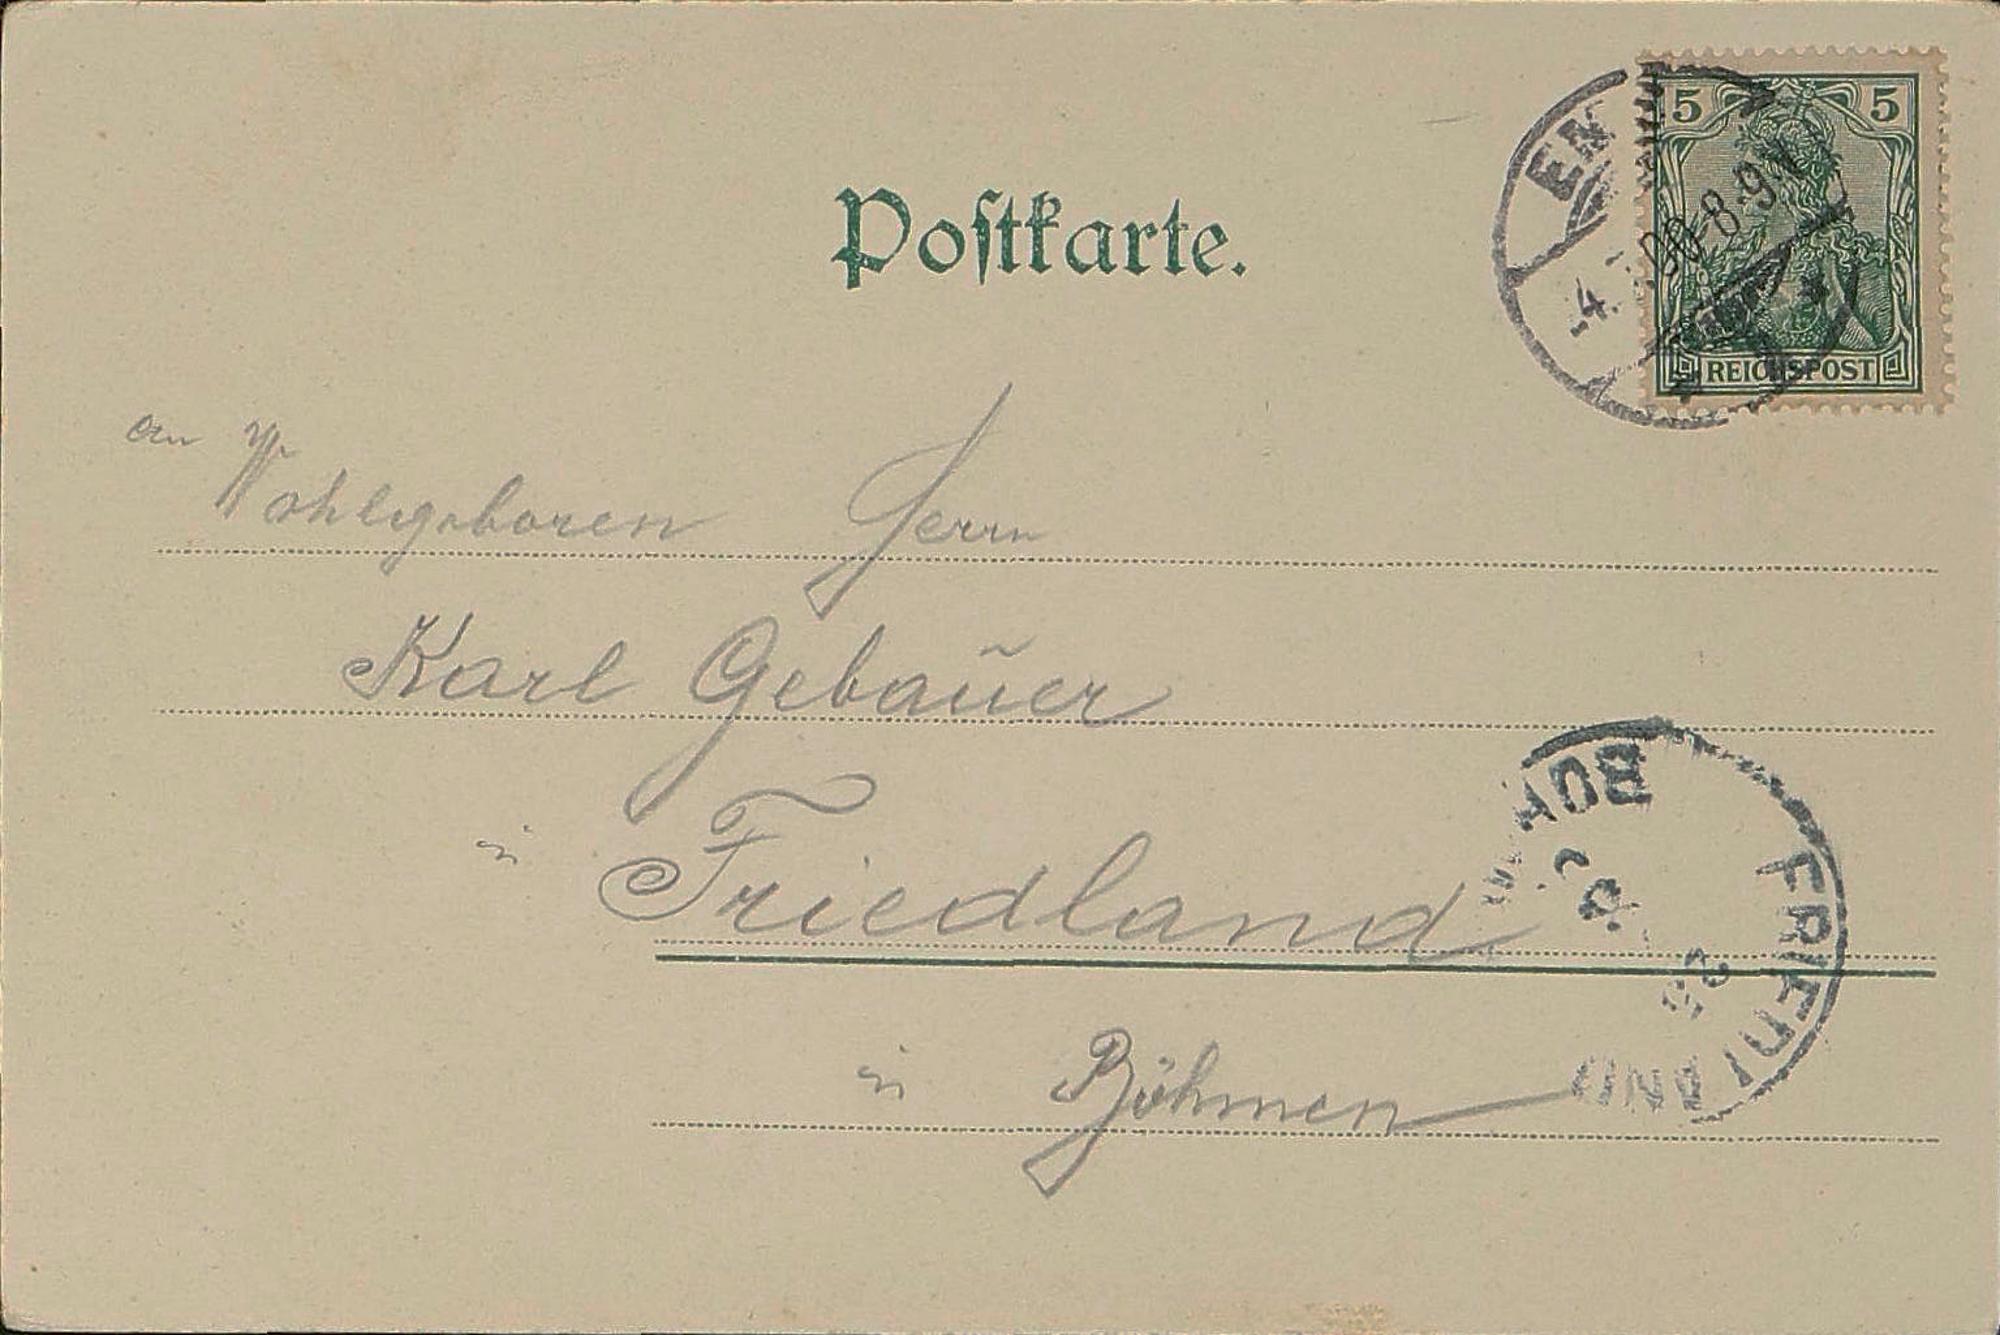 Postkarte.
5 5
REICHSPOST
00 8-9
4.
an Wohlgeboren Herrn
Karl Gebauer
in Friedland
in Böhmen